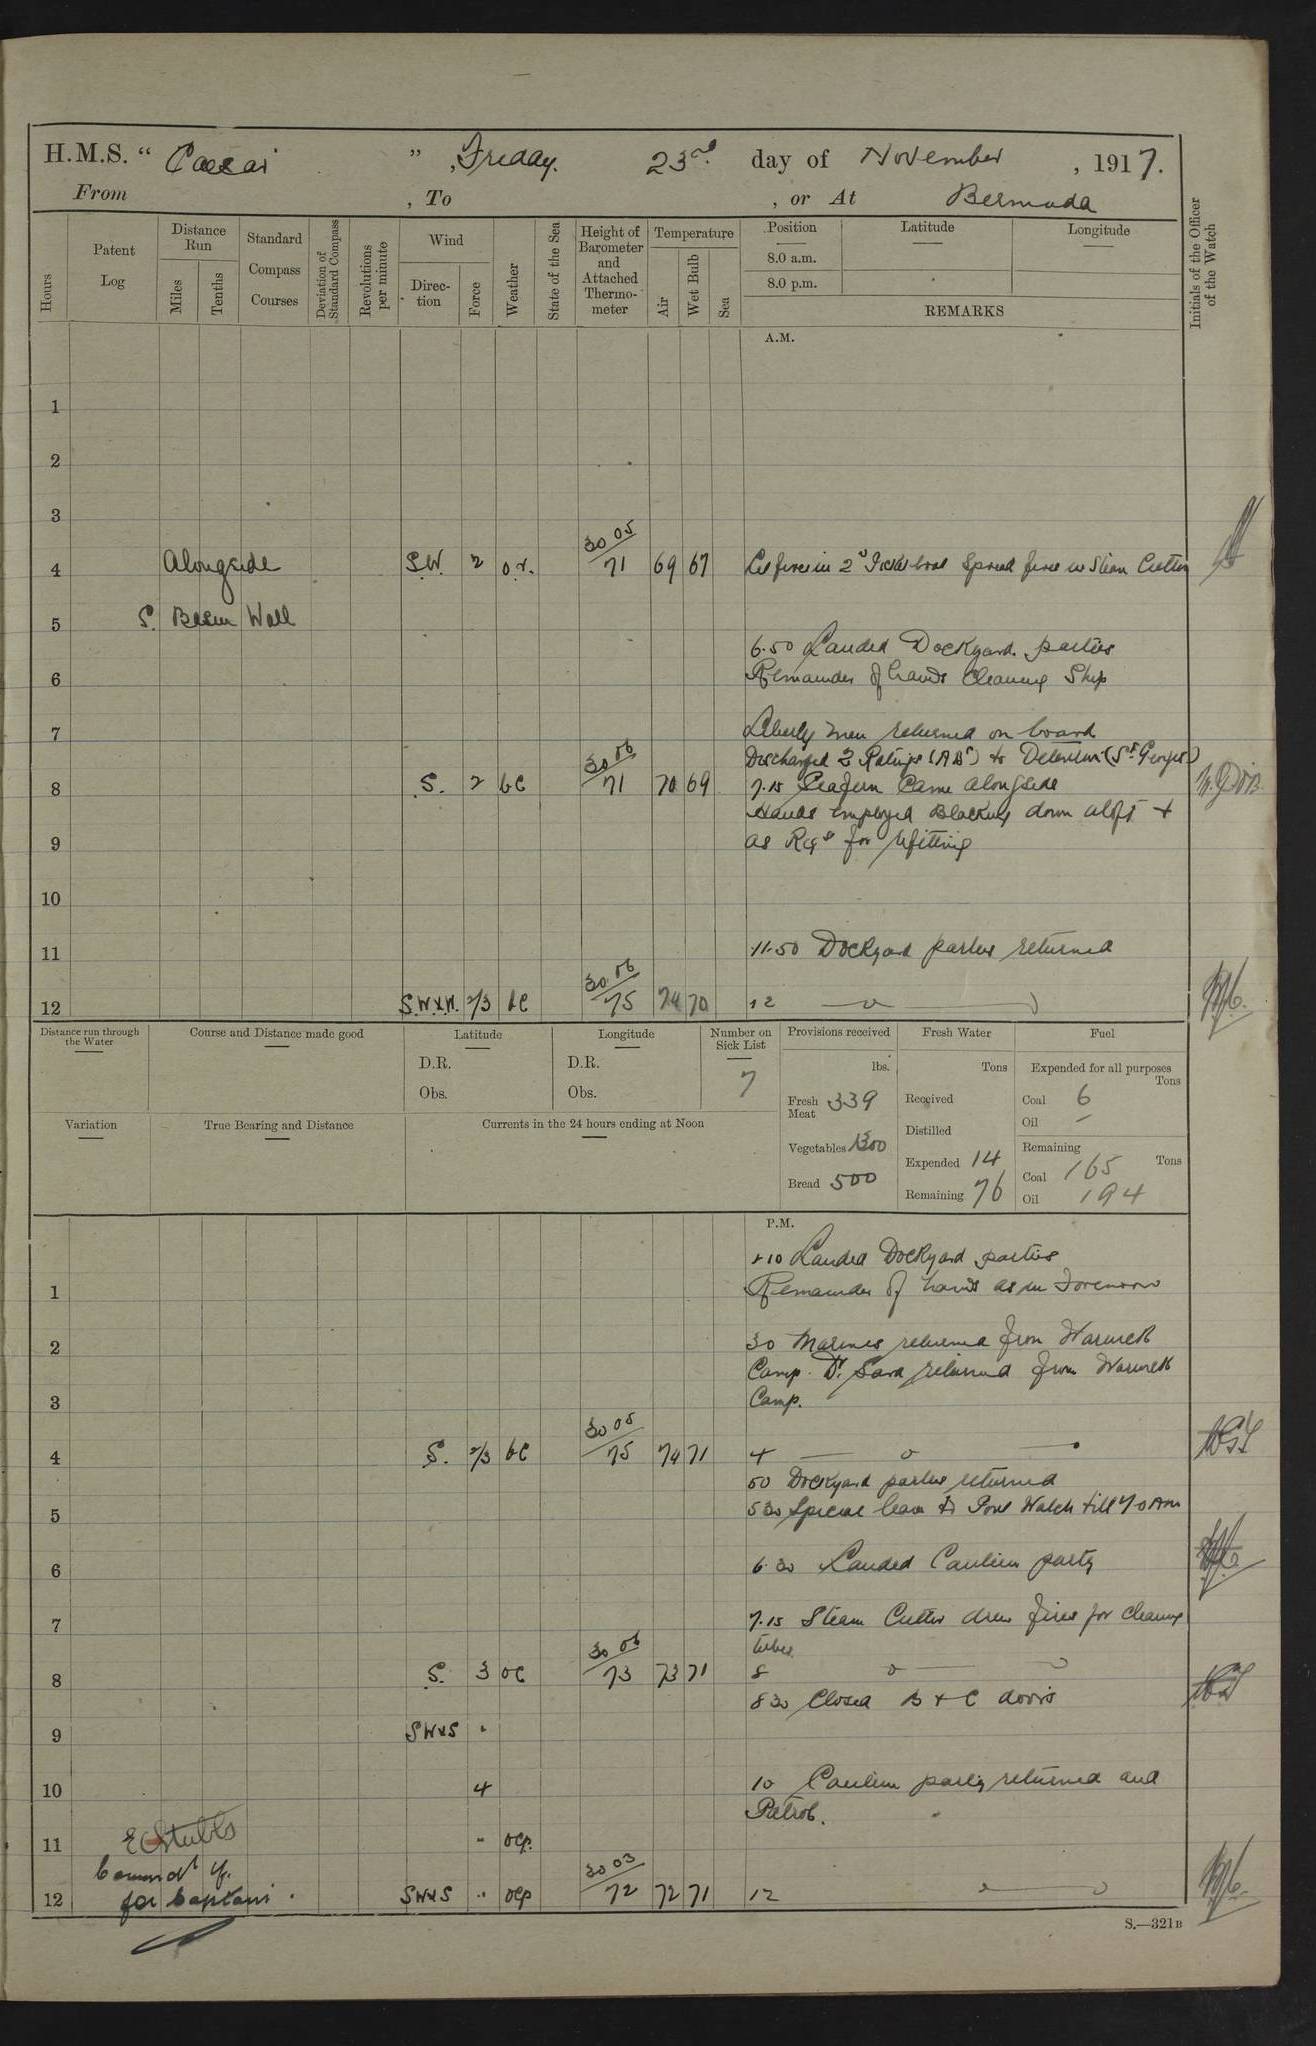 H.M.S. " Caesar ", Friday. 23rd day of November, 1917.
From , To , or At Bermuda
Hours
Patent Log
Distance Run
Miles
Tenths
Standard Compass Courses
Deviation of Standard Compass
Revolutions per minute
Wind
Direction
Force
Weather
State of the Sea
Height of Barometer and Attached Thermometer
Temperature
Air
Wet Bulb
Sea
Position
8.0 a.m.
8.0 p.m.
Latitude
Longitude
REMARKS
Initials of the Officer of the Watch
A.M.
1
2
3
4 Alongside S.W. 2 o.r. 30 05 / 71 69 67 Lit fires in 2d Picket boat Spread fires in Steam Cutter
5 S. Basin Wall
6.50 Landed Dockyard parties
6 Remainder of hands Cleaning Ship
7 Liberty men returned on board
Discharged 2 Ratings (ABs) to Detention (St Georges)
8 S. 2 bc 30 06 / 71 70 69 7.15 Seafern Came alongside
Hands employed Blacking down aloft +
9 as Reqd for refitting
10
11 11.50 Dockyard parties returned
12 S.W.xW. 2/3 bc 30 06 / 75 74 70 12
Distance run through the Water
Course and Distance made good
Latitude
D.R.
Obs.
Longitude
D.R.
Obs.
Number on Sick List
7
Provisions received
lbs.
Fresh Meat 339
Vegetables 1300
Bread 500
Fresh Water
Tons
Received
Distilled
Expended 14
Remaining 76
Fuel
Expended for all purposes
Tons
Coal 6
Oil –
Remaining
Tons
Coal 165
Oil 194
Variation
True Bearing and Distance
Currents in the 24 hours ending at Noon
P.M.
1.10 Landed Dockyard parties
1 Remainder of hands as in Forenoon
2 30 Marines returned from Warwick
Camp. Dr. Sara returned from Warwick
3 Camp.
4 S. 2/3 bc 30 05 / 75 74 71 4
50 Dockyard parties returned
5 5 30 Special leave to Port Watch till 7 0 Am
6 6.30 Landed Canteen party
7 7.15 Steam Cutter drew fires for cleaning
tubes
8 S. 3 oc 30 06 / 73 73 71 8
8 30 Closed B + C doors
9 SWxS "
10 4 10 Canteen party returned and
Patrol.
11 E Stubbs " ocp.
Commdr
12 for Captain. SWxS " ocp 30 03 / 72 72 71 12
S.—321B